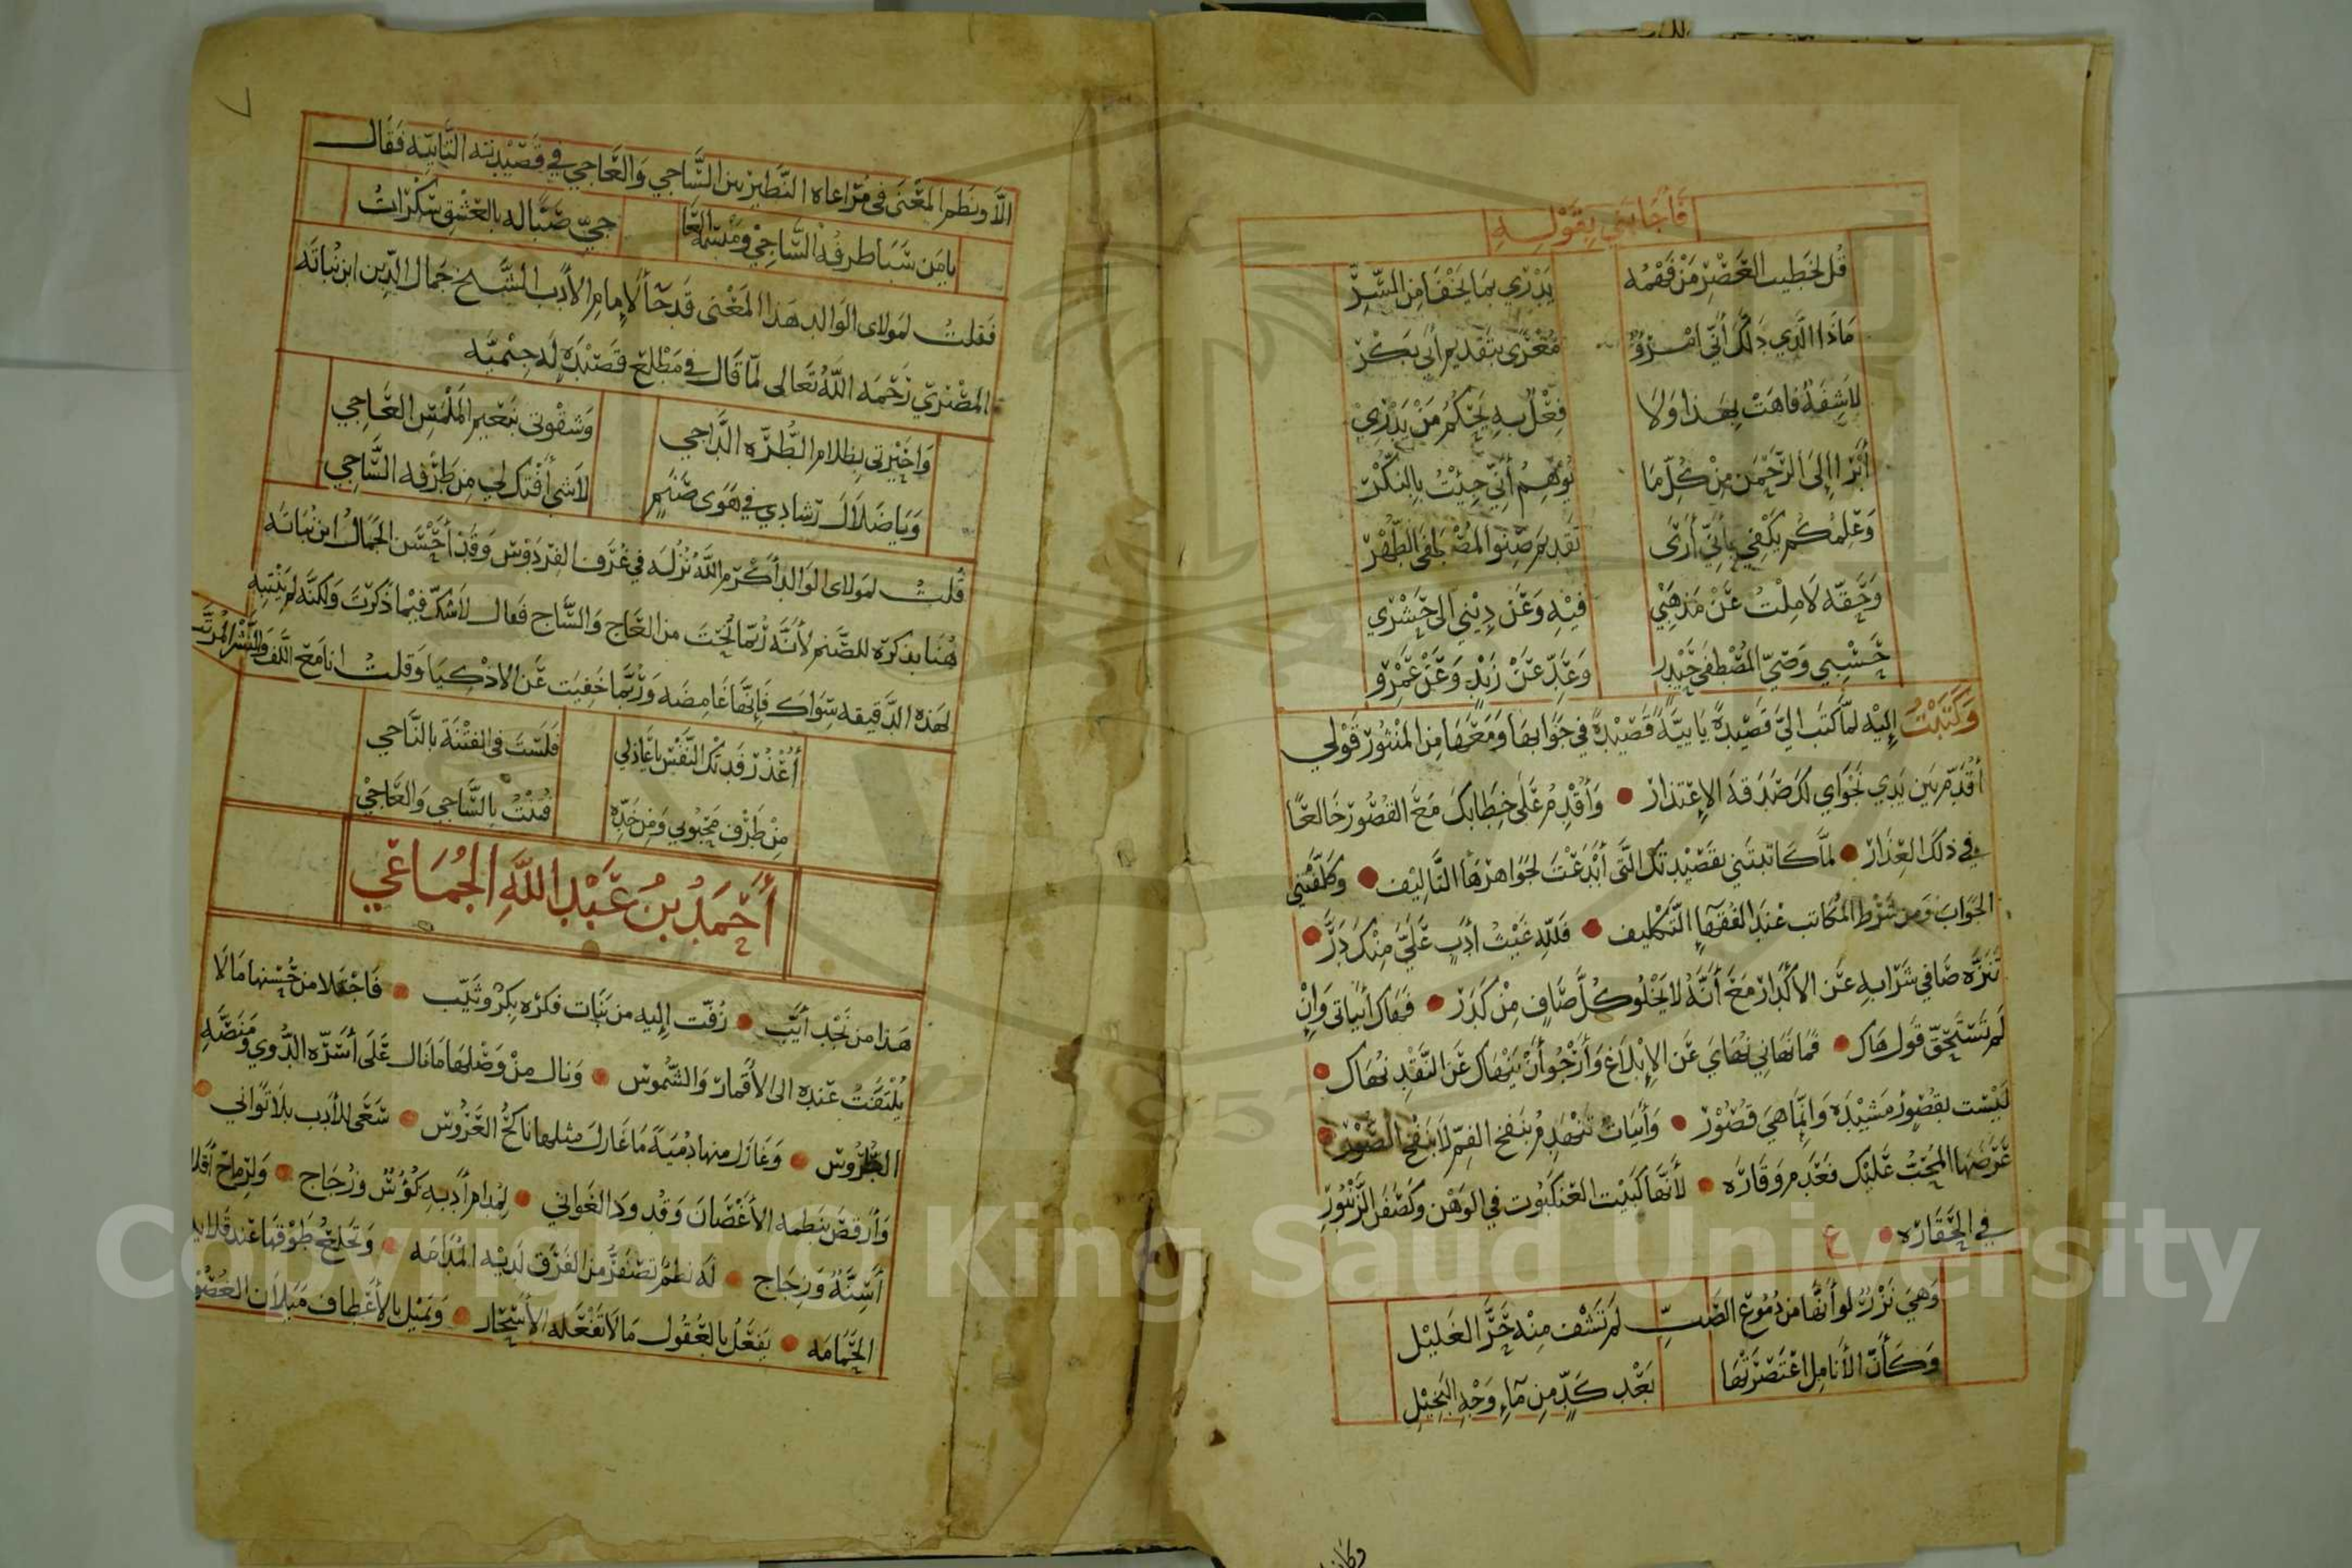 فَأَجَابَنِي بِقَوْلِهِ
قُل لخَطِيب العَصْرِ مَنْ فَهْمُه يَدْرِي بمَا يَخْفَا مِنَ السِّرِّ
مَاذَا الَّذي دَلَّكَ أَنِّي امْرُؤٌ مُغْرًى بتَقدِيم أَبي بَكْرِ
لَا شِفَةٌ فَاهَتْ بِهَذا وَلَا فِعْلٌ بِهِ يَحْكُمُ مَنْ يَدْرِيْ
أَبْرَا إِلَى الرَّحْمَنِ مِنْ كُلِّ مَا يُوهِمُ أَنِّي جِئْتُ بِالنكْرِ
وَعِلمُكُم يَكْفِي بِأَنِّي أَرَى تَقدِيمَ صِنوِ المُصْطَفَى الطُّهْرِ
وَحَقِّه لَا مِلْتُ عَنْ مَذهَبْي فيْهِ وَعَن دِيْنِي الى حَشْرِي
حَسْبِي وَصِيّ المُصْطَفَى حَيْدر وَعَدِّ عَنْ زَيْدٍ وَعَنْ عَمْرِو
وَكَتَبْتُ إِليْه لمَّا كتَبَ اليَّ قَصِيْدةً يَاييَّةً قَصِيْدةً في جَوَابهَا وَمَعَهَا مِنَ المنْثُورْ قَوْلي
أُقَدِّم بَين يَدِي نَجْوَاي لكَ صَدَقةَ الإِعْتِذَارْ وَأُقْدِمُ عَلَى خِطَابكَ مَعَ القُصُور خَالعًا
في ذلكَ العِذَارْ لمَّا كَاتَبتَني بقَصِيْدتكَ الَّتي أَبْدَعْتَ لجَوَاهرَهَا التَّالِيْف وَكلَّفْتَني
الجَوَابَ وَمِن شَرْط المُكَاتب عْندَ الفُقَهَاءِ التَّكْليف فَلِلَّهِ غَيْثُ أدَبٍ عَلَيَّ مِنْكَ دَرَّ
تَنَزَّه صَافِي شَرَابهِ عَن الأَكْدَارْ مَعَ أَنَّهُ لَا يَخْلُو كُلُّ صَافٍ مِنْ كَدَرْ فَهَاكَ أَبْيَاتي وَإِنْ
لَم تَسْتَحِقّ قَول هَاكَ فَمَا نَهَاني نُهَايَ عَن الإِبْلَاغ وَأَرْجُو أَنْ يَنْهَاكَ عَن النَّقْدِ نُهَاكَ
لَيْسَت بقُصُورٍ مَشِيْدَه وَإِنَّمَا هِيَ قُصُوْرْ وَأَبْيَات تَنْهَدِمُ بنَفخ الفَمِ لَا بنَفْخ الصُّوْر
عَرَضَهَا المُحِبُّ عَليْكَ فعَدِم وَقَارَه لأَنَّهَا كَبَيْت العَنكَبُوت في الوَهْن وَكَصُفْر الزُّنبُور
في الحَقَارَه ع
وَهيَ نَزْرٌ لو أَنَّهَا مِن دُمُوع الصَّبِّ لَم تَشْفِ مِنْه حَرَّ الغَليْل
وَكَأَنَّ الأَنَامِل اعْتَصَرَتْهَا بَعْد كَدٍّ مِن مَآءِ وَجْهِ البَخِيْلِ
وكان
٧
الَّا ونظم المَعْنَى في مُرَاعَاه النَّظِير بَين السَّاجي وَالعَاجي في قَصِيْدَته التَّائيّه فَقَال
يا مَن سَبَا طرفُهُ السَّاجيْ وَمَبْسَمهُ العَا جيّ صَبًّا له بالعشْق سَكْرَاتُ
فَقلتُ لمَولاى الوَالد هَذا المَعْنى قَد جَآ لإِمام الأَدَب الشَّيخ جَمال الدِّين ابن نُباتَه
المصْري رَحمَه اللَّهُ تَعَالى لمَّا قَال في مَطْلع قَصِيْدةٍ له جِيْميّه
وَاحَيْرتي بظلَام الطُّرَّه الدَّاجي وَشقْوتي بنَعيم المَلْمَس العَاجي
وَيَا ضَلَال رَشَادي في هَوَى صَنَمٍ لَا شي أَفْتَك لي مِن طَرْفه السَّاجي
قُلتُ لمَولاى الوَالد أَكْرَم اللَّهُ نُزُلَه في غُرَف الفِردَوْس وَقَد أَحْسَن الجَمَالُ ابن نُبَاتَه
هُنَا بذكرِه للصَّنم لأَنَّه رُبّما نُحِتَ من العَاج وَالسَّاج فَقَال لَا شَكّ فيْما ذَكَرتَ وَلكنَّه لم يَنْتَبِه
لهَذه الدَّقيقه سِوَاك فَإِنَّهَا غَامِضَه وَرُبَّما خَفيَت عَن الاذْكيَا وَقلتُ انا مَعَ اللَّفّ وَالنَّشْر المُرَتَّب
أُعْذُر فَدتكَ النَّفْس يا عَاذلي فَلسْتَ في الفتْنَة بالنَّاجي
مِنْ طَرْف مَحْبُوبي وَمِن خَدِّه فُتنْتُ بالسَّاجي وَالعَاجيْ
أَحْمَدُ بْنُ عَبْدِ اللَّهِ الجُمَاعِي
هَذا من نَجْد أَيّب زُفّت إِليه من بَنَات فكره بكْر وَثَيِّب فَاجْتَلَا من حُسْنها مَا لَا
يُلْتَفتُ عنده الى الأَقمار وَالشُّموس وَنال مِنْ وَصْلهَا مَا نَال عَلَى أَسِرّه الدُّوي وَمنَصَّه
الطُّرُوس وَغَازَل منهَا دمْيَةً مَا غَازل مثلهَا نَاكحُ العَرُوس سَعَى للأَدَب بلَا تَوَاني
وَأَرقصَ بنَظمه الأَغْصَان وَقُدودَ الغَوَاني لِمُدام أَدبهِ كؤُسٌ وَزُجَاج وَلرِماح أقلا
أَسِنَّةٌ وَزِجَاج لَه نظمٌ تصْفَرُّ من الفَرَق لَديْه المُدَامَه وَتَخلَعُ طَوْقهَا عند قَلايد
الحَمَامَه يَفعَلُ بالعُقُول مَا لَا تَفْعَله الأَسْحَار وَتَميْل بالأَعْطاف مَيَلَان الغُصُن
Copyright © King Saud University
1957